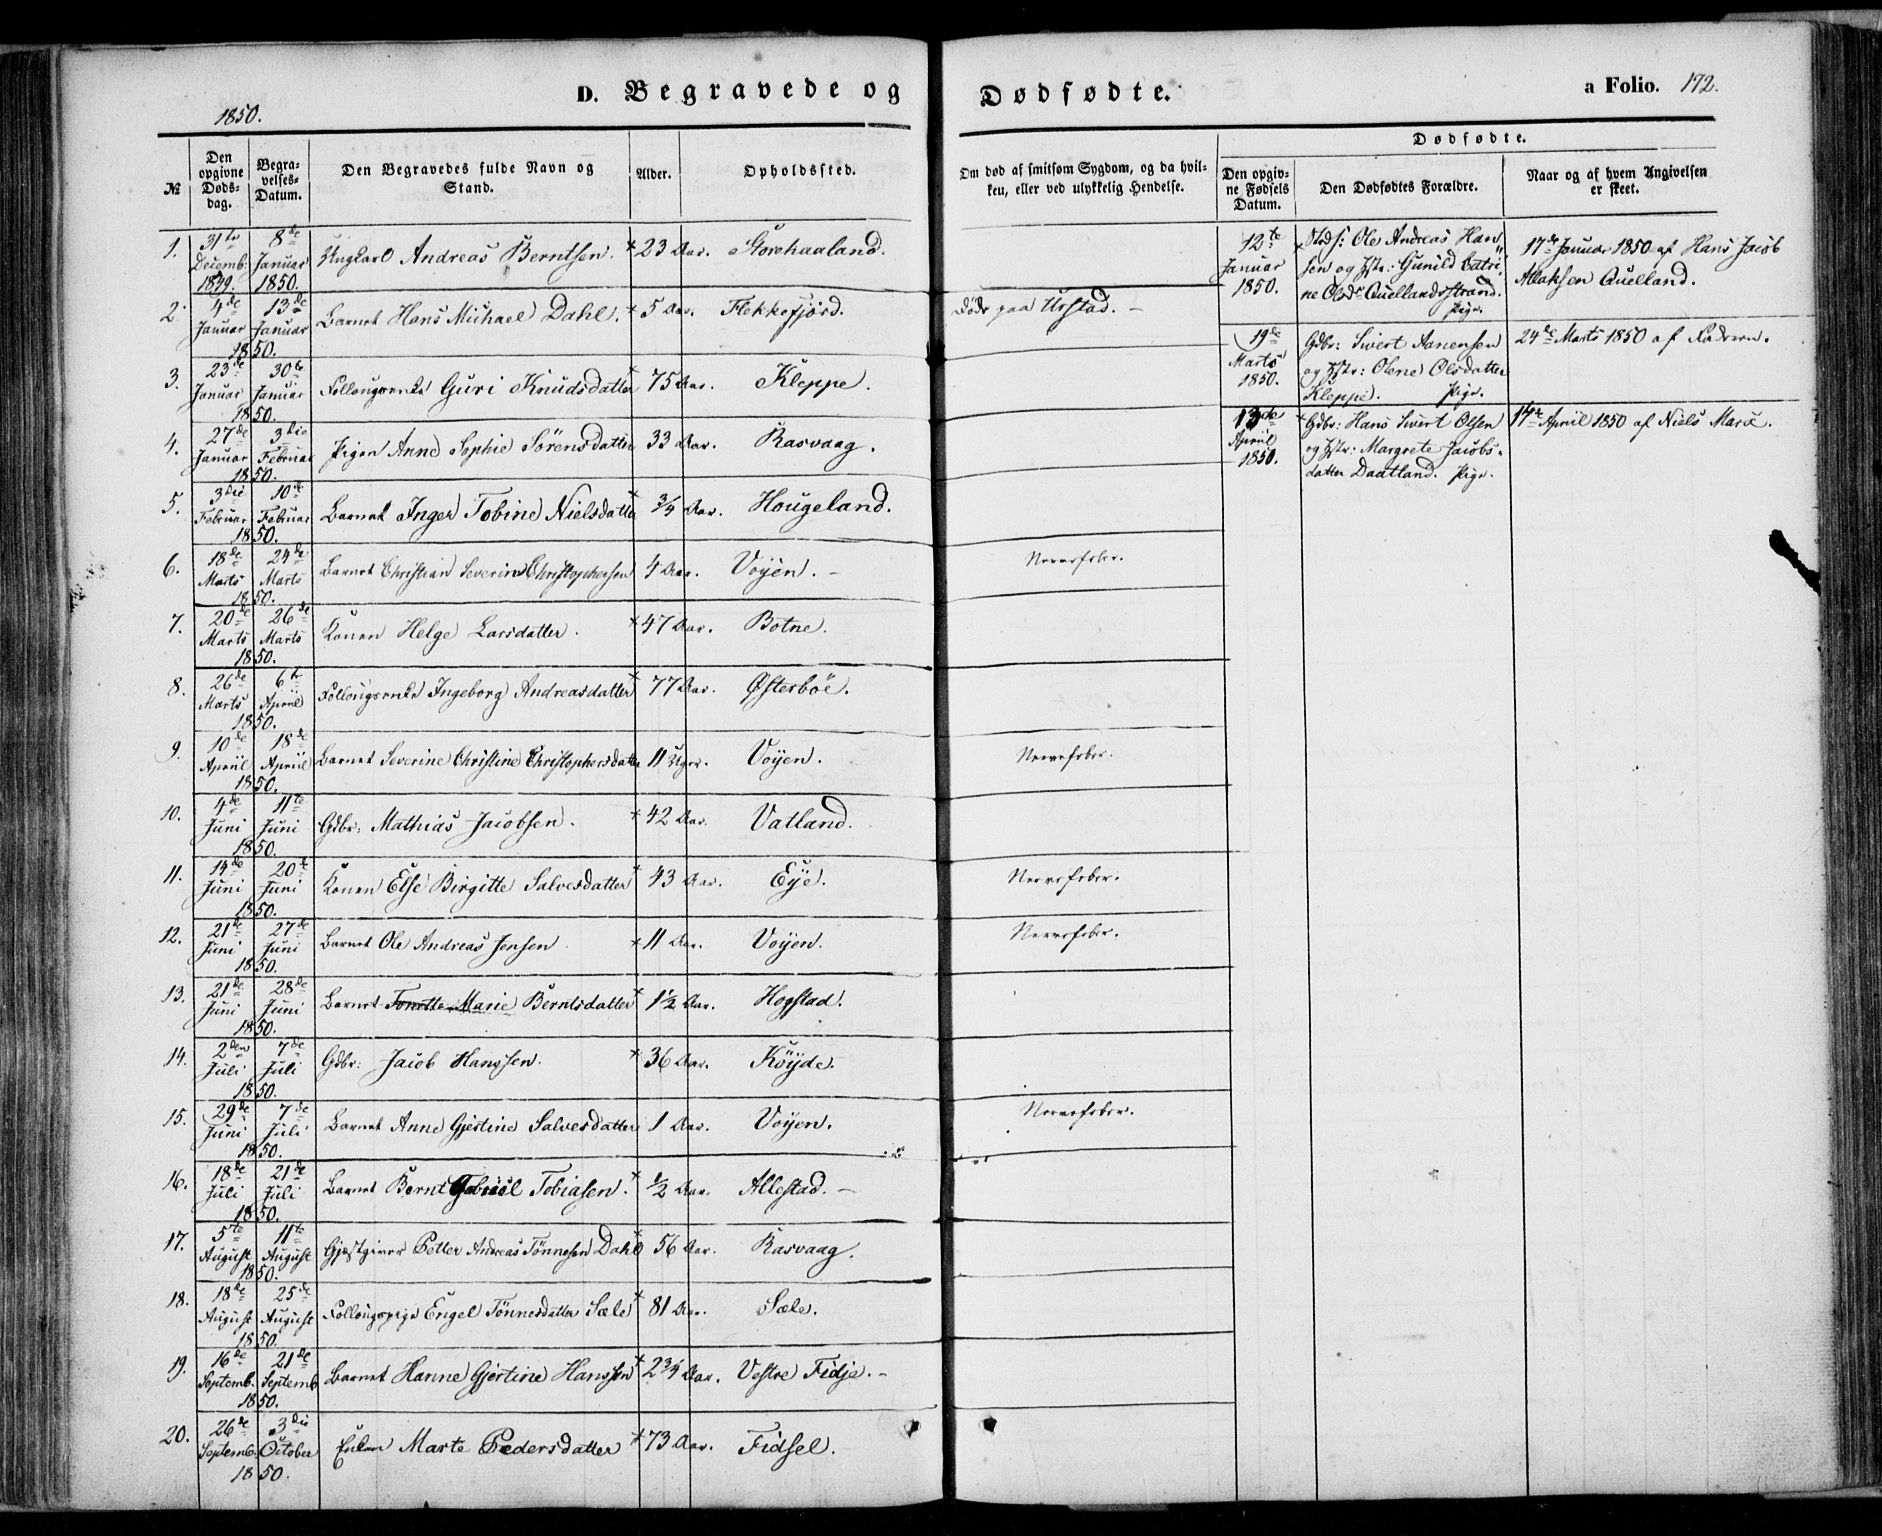 D. Begravede og Dødfødte.
a Folio. 172.
1850.
№
Den opgivne Døds-dag.
Begra-velses-Datum.
Den Begravedes fulde Navn og Stand.
Alder.
Opholdssted.
Om død af smitsom Sygdom, og da hvil-ken, eller ved ulykkelig Hendelse.
Dødfødte.
Den opgiv-ne Fødsels Datum.
Den Dødfødtes Forældre.
Naar og af hvem Angivelsen er skeet.
1. 31te Decemb: 1849. 8de Januar 1850. Ungkarl Andreas Berntsen. + 23 Aar. Storehaaland.
2. 4de Januar 13de Januar 1850. Barnet Hans Michael Dahl. + 5 Aar. Flekkefjord. Døde paa Urstad. –
3. 23de Januar 30te Januar 1850. Follougsenke Guri Knudsdatter + 75 Aar. Kleppe.
4. 27de Januar 3die Februar 1850. Pigen Anne Sophie Sørensdatter 33 Aar. Rasvaag.
5. 3die Februar 10de Februar 1850. Barnet Inger Tobine Nielsdatter + 3/4 Aar. Hougeland.
6. 18de Marts 24de Marts 1850. Barnet Christian Severin Christophersen 4 Aar. Voÿen. – Nervefeber.
7. 20de Marts 26de Marts 1850. Konen Helge Larsdatter. + 47 Aar. Botne.
8. 26de Marts 6te April 1850. Follougsenke Ingeborg Andreasdatter + 77 Aar. Østerböe.
9. 10de April 18de April 1850. Barnet Severine Christine Christophersdatter 11 Uger. Voÿen. Nervefeber.
10. 4de Juni 11te Juni 1850. Gdbr: Mathias Jacobsen. + 42 Aar. Vatland.
11. 14de Juni 20de Juni 1850. Konen Else Birgitte Salvesdatter + 43 Aar. Eÿe. Nervefeber.
12. 21de Juni 27de Juni 1850. Barnet Ole Andreas Jensen + 11 Aar. Voÿen. Nervefeber.
13. 21de Juni 28de Juni 1850. Barnet Tonette Marie Berntsdatter + 1 1/2 Aar. Hogstad.
14. 2den Juli 7de Juli 1850. Gdbr: Jacob Hanssen. + 36 Aar. Köÿde.
15. 29de Juni 7de Juli 1850. Barnet Anne Gjertine Salvesdatter 1 Aar. Voÿen. Nervefeber.
16. 18de Juli 21de Juli 1850. Barnet Bernt Gabriel Tobiasen. + 1/2 Aar. Allestad. –
17. 5te August 11te August 1850. Gjæstgiver Petter Andreas Tönnesen Dahl + 56 Aar. Rasvaag.
18. 18de August 25de August 1850. Follougspige Engel Tönnesdatter Sæle + 81 Aar. Sæle.
19. 16de Septemb. 21de Septemb 1850. Barnet Hanne Gjertine Hanssen + 2 3/4 Aar. Vestre Fidje. –
20. 26de Septemb. 3die October 1850. Enken Marte Pedersdatter + 73 Aar. Fidsel.
12te Januar 1850.
+ Ole Andreas Han-
sen og Hstr: Gunild Catri-
ne Olsd: Quellandsstrand.
Pige.
17de Januar 1850 af Hans Jacob
Quelland.
19de Marts 1850.
Gdbr: Sivert Aanensen
og Hstr: Olene Olsdatter
Kleppe. Pige.
24de Marts 1850 af Faderen.
13de April 1850.
+ Gdbr: Hans Sivert Olsen
og Hstr: Margrete Jacobs-
datter Daatland. Pige.
14de April 1850 af Niels